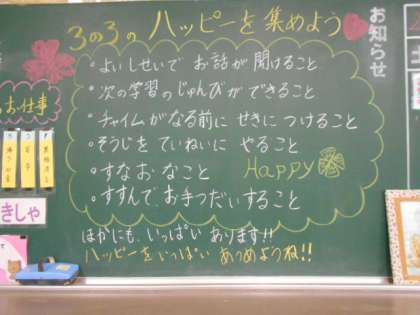 3の3の ハッピーを集めよう
・よいしせいで お話が聞けること
・次の学習のじゅんびができること
・チャイムがなる前に せきにつけること
・そうじをていねいに やること
・すなおなこと
HAPPY
・すすんで、お手つだいすること
ほかにも、いっぱい あります!!
ハッピーをいっぱい あつめようね!!
お知らせ
お仕事
きしゃ